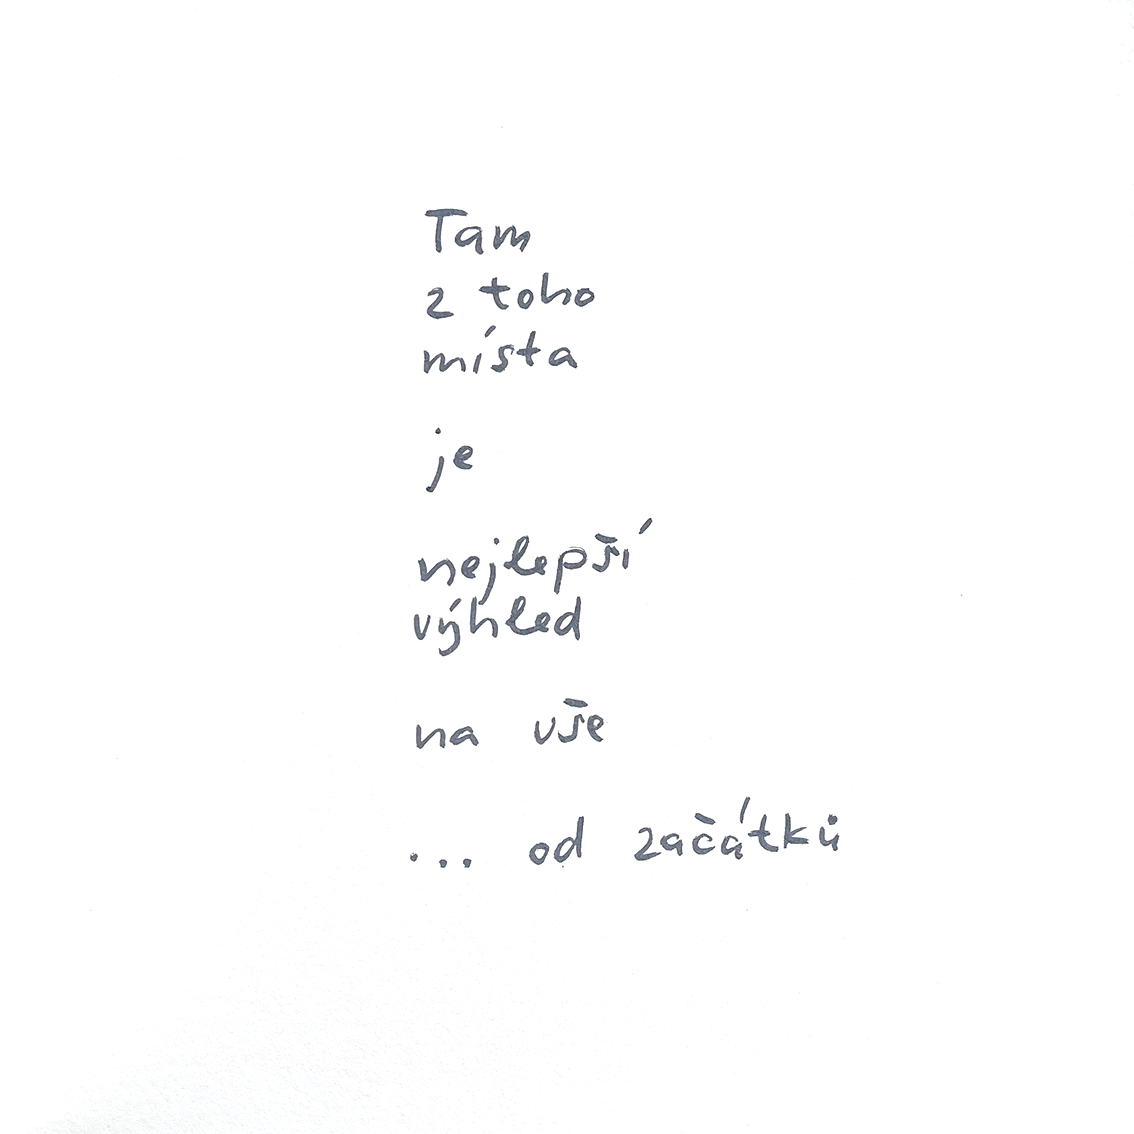 Tam
z toho
místa
je
nejlepší
výhled
na vše
... od začátků